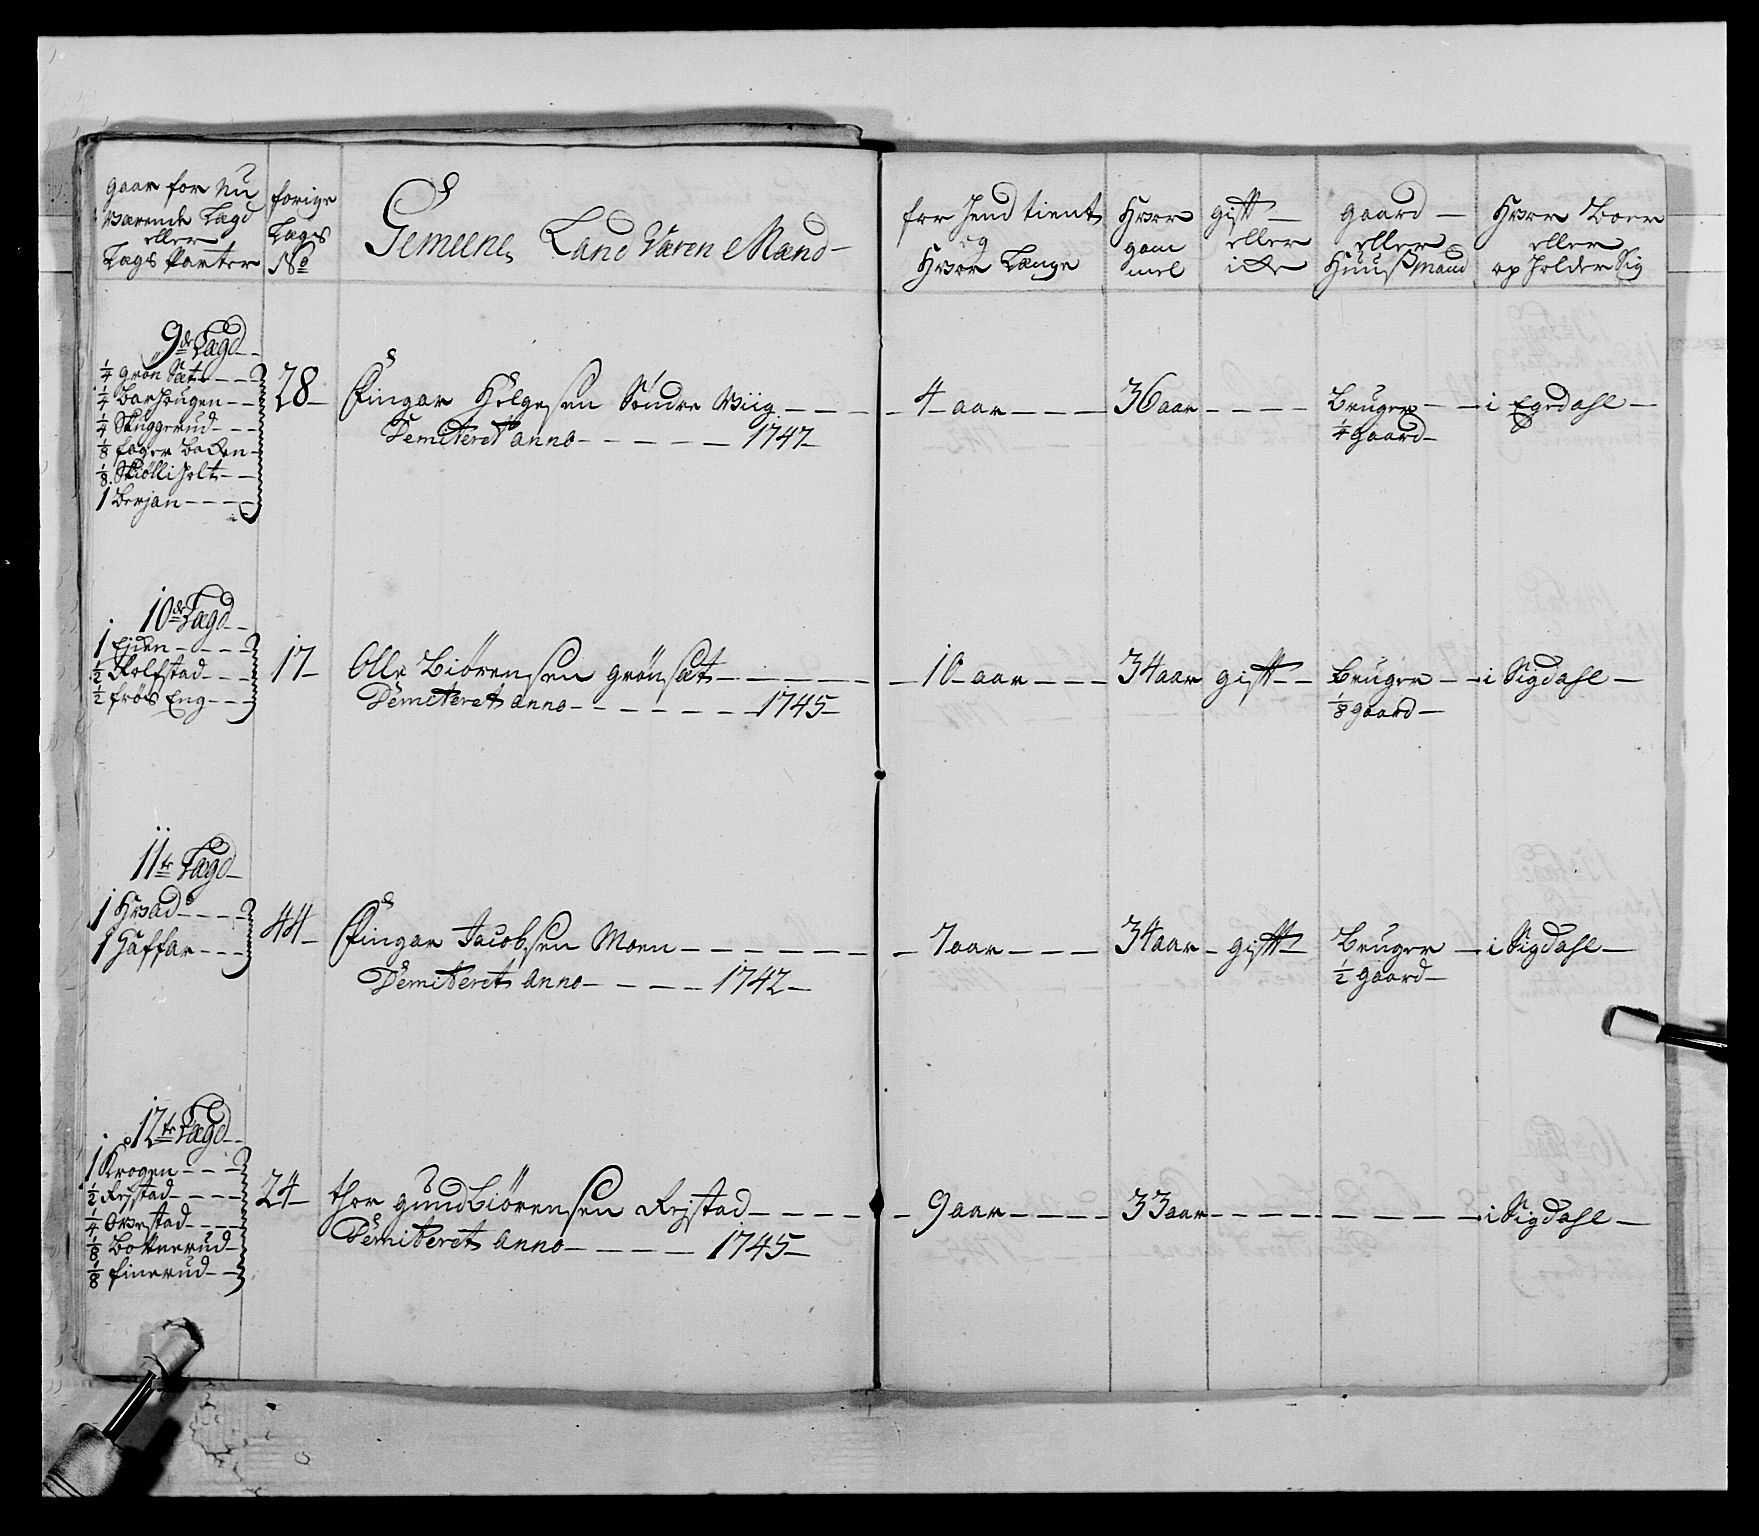 gaar for Nu
værende Lægd
eller
Lægs Parter
forige
Lægs
No
Gemeene Land Væren Mænd
for hend tient
og
Hvor Længe
Hvor
gam
mel
gift
eller
icke
gaard
eller
Huusmand
Hvor Boer
eller
opholder Sig
9de Lægd
1/4 grøn Sæt
1/4 Barhougen
1/4 Skuggerud
1/8 fager Backen
1/8 Skiølli holt
1 Berjan
28
Einar Helgesen Søndre Wiig
Demiteret anno 1747
4 aar
36 aar
Bruger
1/4 gaard
i Egedahl
10de Lægd
1 Eiden
1/2 Rolfstad
1/2 frøis Eng
17
Olle Biørensen grønsæt
Demiteret anno 1745
10 aar
34 aar
gift
Bruger
1/8 gaard
i Sigdahl
11te Lægd
1 Hvad
1 Haffar
44
Einar Jacobsen Moen
Demiteret anno 1742
7 aar
34 aar
gift
Bruger
1/2 gaard
i Sigdahl
12te Lægd
1 Krogen
1/2 Rejstad
1/4 Ovestad
1/8 Bottnerud
1/8 finerud
24
thor gundbiørensen Rejstad
Demiteret anno 1745
9 aar
33 aar
i Sigdahl